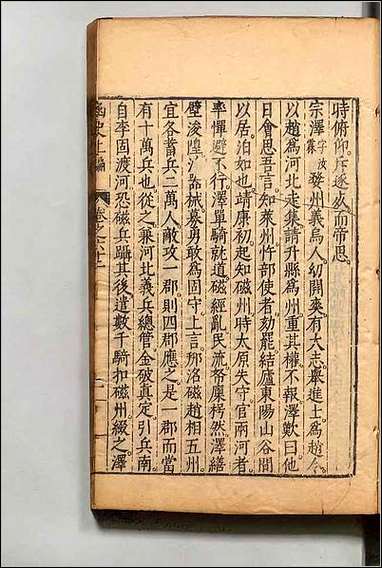 時俯仰斥逐久而帝思
宗澤字汝霖婺州義烏人幼開爽有大志舉進士爲趙令
以趙爲河北走集請升縣爲州重其權不報澤歎曰他
日會思吾言知萊州忤部使者劾罷結廬東陽山谷間
以居泊如也靖康初起知磁州時太原失守官兩河者
率憚避不行澤單騎就道磁經亂民流帑廩枵然澤繕
壁浚隍治器械募勇敢爲固守上言邢洺磁趙相五州
宜各蓄兵二萬人敵攻一郡則四郡應之是一郡而當
有十萬兵也從之兼河北義兵總管金破真定引兵南
自李固渡河恐磁兵躡其後遣數千騎扣磁州綴之澤
函史上編 卷之六十